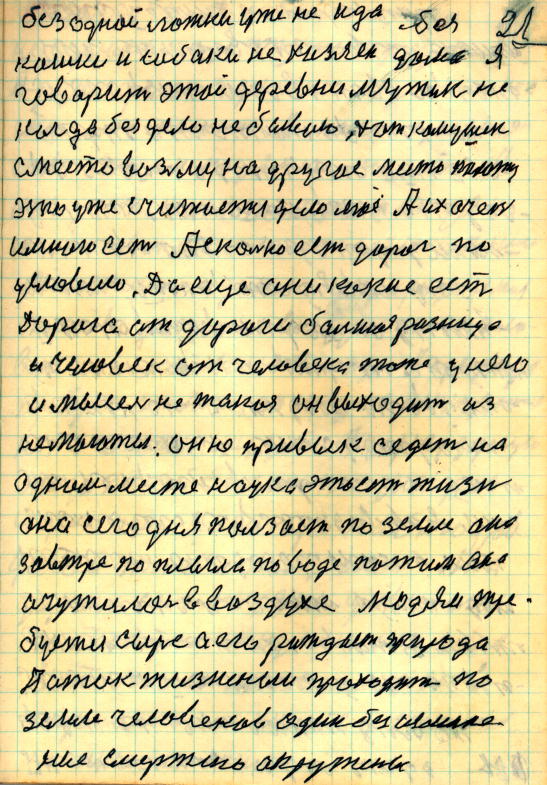 21
без одной ложки уже не ида без
кошки и собаки не хозяен дома я
говарит этой деревни мужик не
когда без дело не бываю, хот камушек
с место возму на другое место положу
это уже считается дело моё А их очен
и много ест А сколко ест дорог по
условию. Да еще они какие ест
Дорога от дороги балшая разница
и человек от человека тоже у него
и мысел не такая он выходит из
немаготы. он не привык седет на
одном месте наука это ест жизн
она сегодня ползает по земле она
завтре поплыла по воде потим она
очутилас в воздухе людям тре-
буется сыре а его раждает природа
Паток жизненый проходит по
земле человеков один без
ние смертию акружены